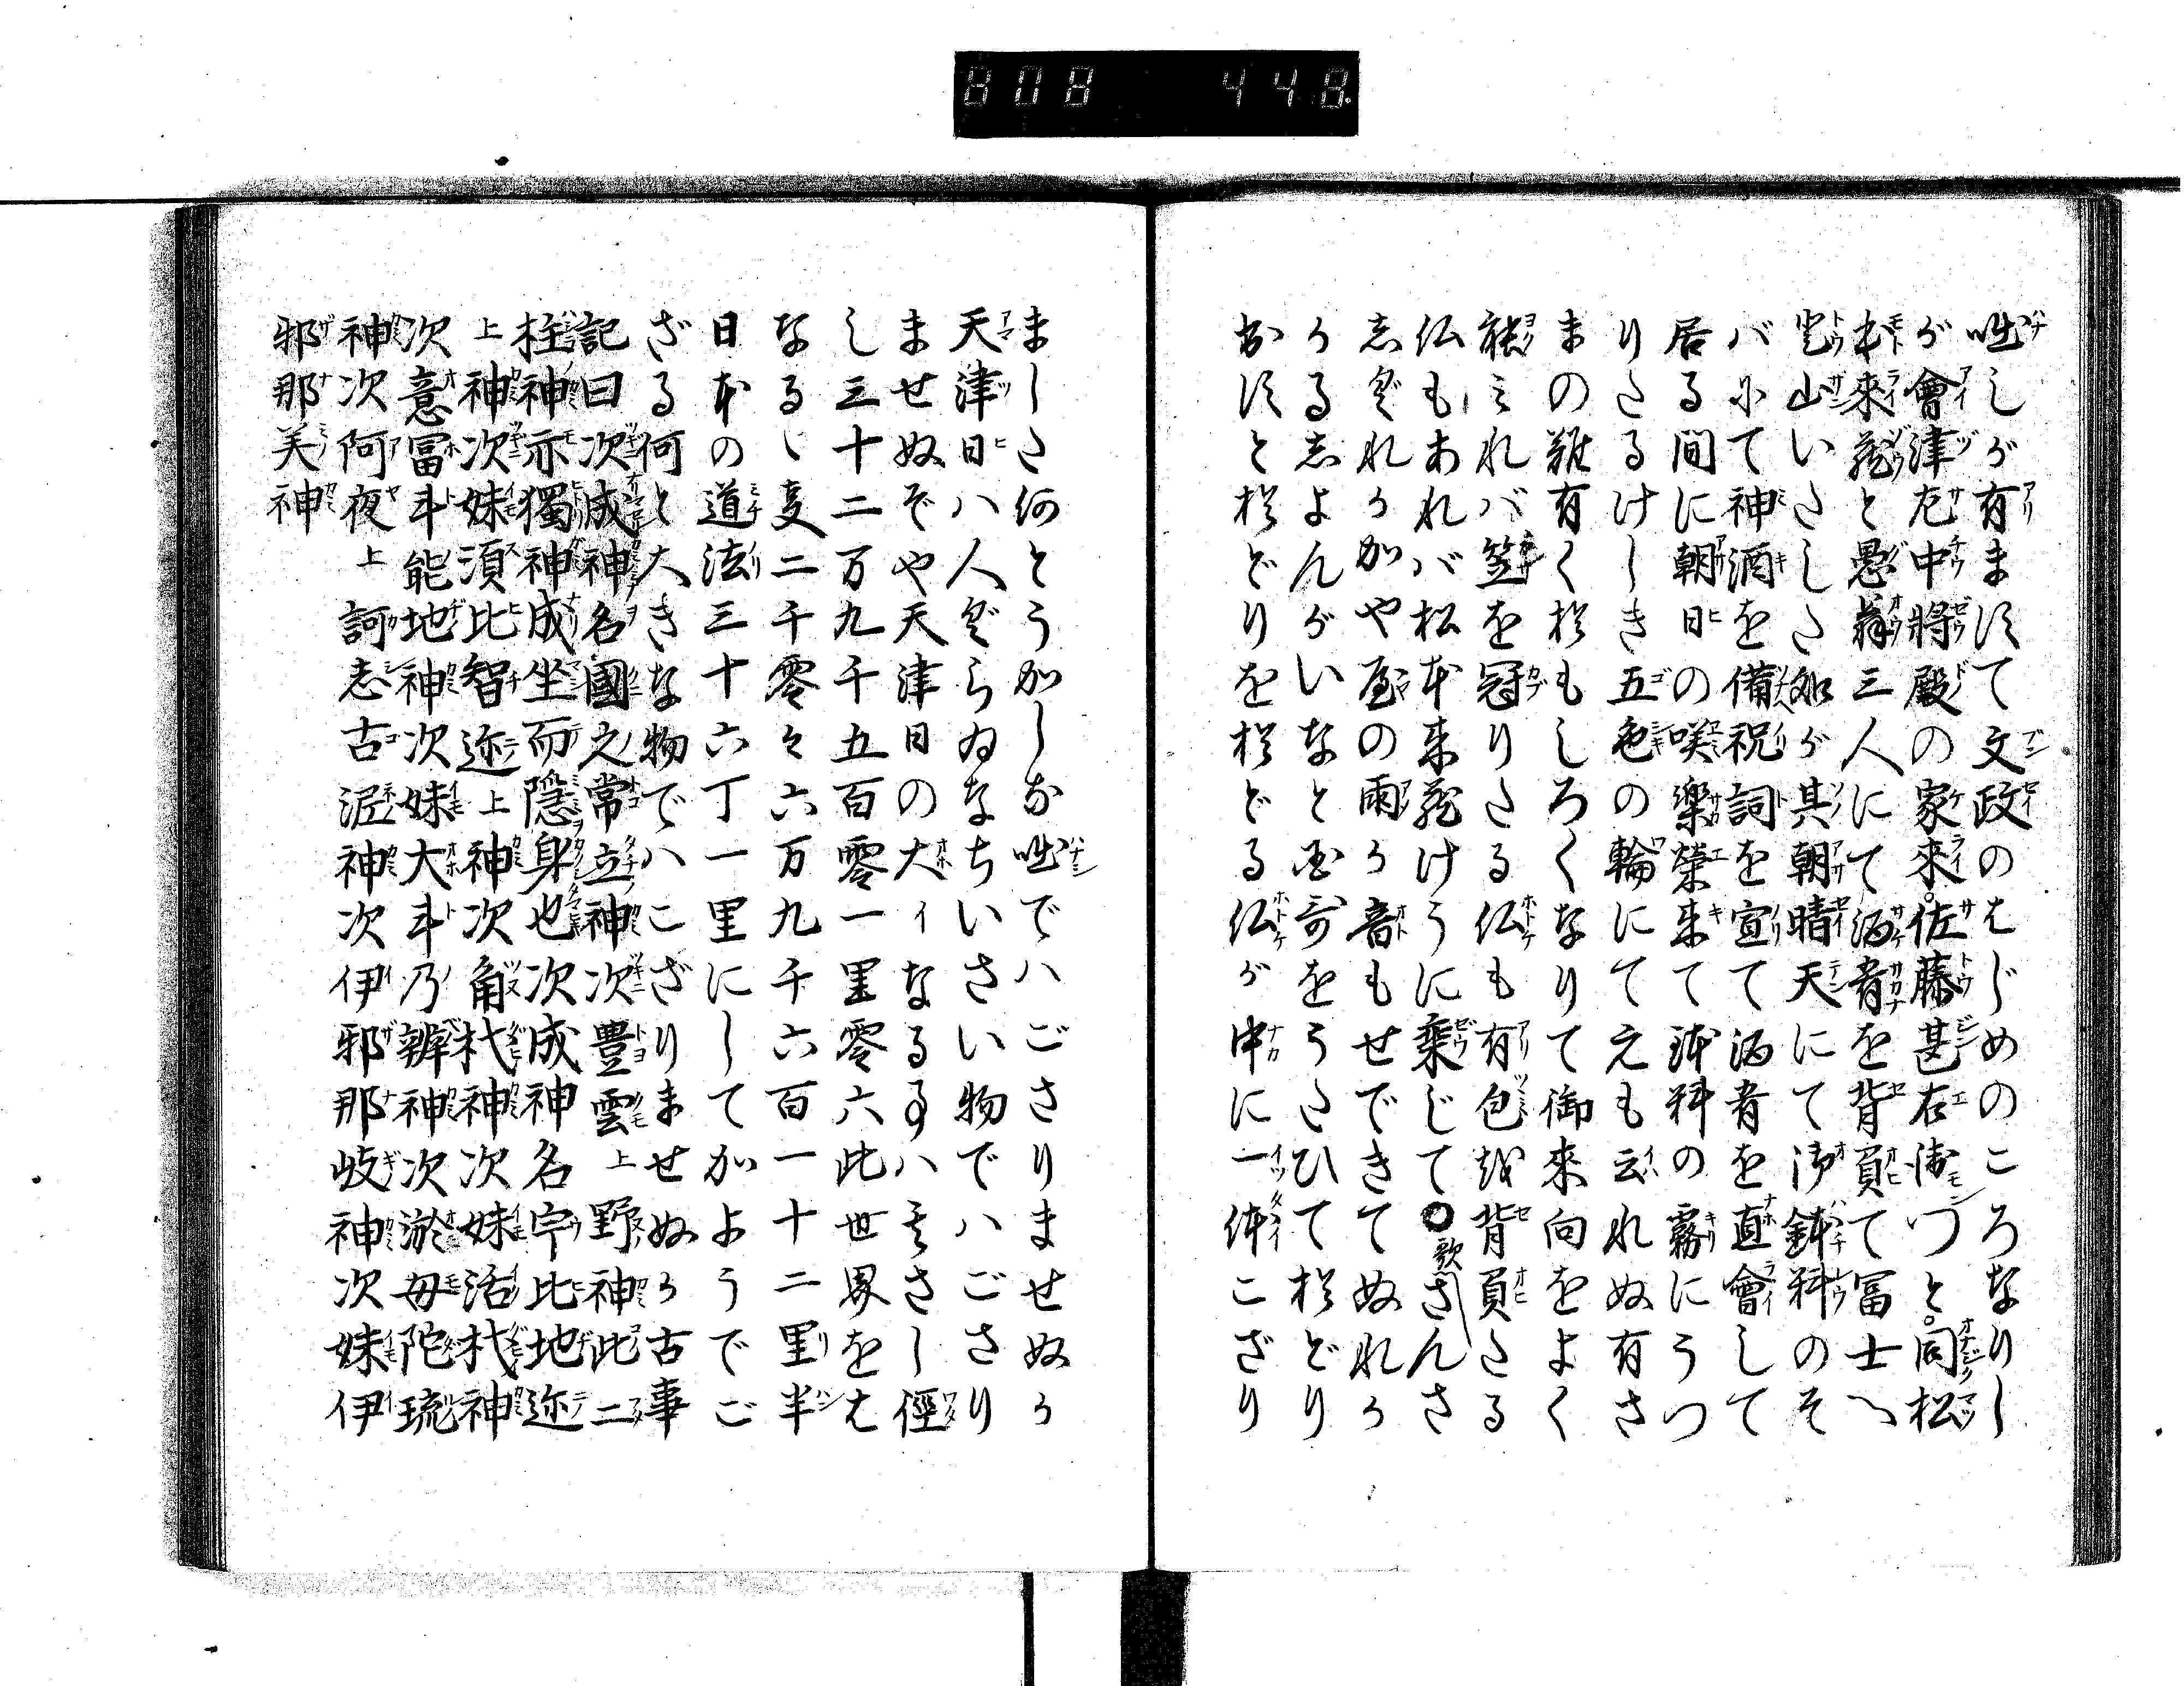 808 448.
咄しが有ます文政のはじめのころなりし
が會津左中將殿の家來。佐藤甚右衛つと。同松
本來藏と愚翁三人にて酒肴を背負て冨士へ
登山いたしさ如が其朝晴天にて御鉢料のそ
バにて神酒を備祝詞を宣て酒肴を直會して
居る間に朝日の咲樂榮來て鉢料の霧にうつ
りたるけしき五色の輪にて元も云れぬ有さ
まの難有く拟もしろくなりて御來向をよく
能みれバ笠を冠りたる仏も有包を背負たる
仏もあれバ松本来藏けうに乘じて〇歌さんさ
志ぐれうかや屋の雨う音もせできてぬれう
うる志よんがいなと哥をうたひて拟どり
おすと拟どりを拟どる仏が中に一体ござり
ました何とうかしな咄でハごさりませぬう
天津日ハ人ぐらゐなちいさい物でハごさり
ませぬぞや天津日の大ィなる事ハさし徑
し三十二万九千五百零一里零六此世界をは
なるゝ亥二千零々六万九千六百一十二里半
日本の道法三十六丁一里にしてかようでご
ざる何と大きな物でハござりませぬう古事
記曰次成神名國之常立神次豊雲上野神此二
柱神亦獨神成坐而隱身也次成神名宇比地迩
上神次妹須比智迩上神次角杙神次妹活杙神
次意冨斗能地神次妹大斗乃辨神次淤母陀琉
神次阿夜上訶志古泥神次伊邪那岐神次妹伊
邪那美神